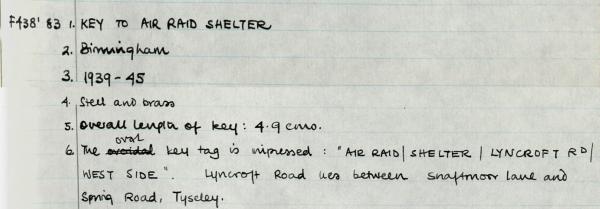 F438'83 1. KEY TO AIR RAID SHELTER
2. Birmingham
3. 1939-45
4. Steel and brass
5. Overall length of key: 4.9 cms.
6. The oval key tag is impressed: "AIR RAID/ SHELTER / LYNCROFT RD/
WEST SIDE". Lyncroft Road lies between Shaftmoor Lane and
Spring Road, Tyseley.